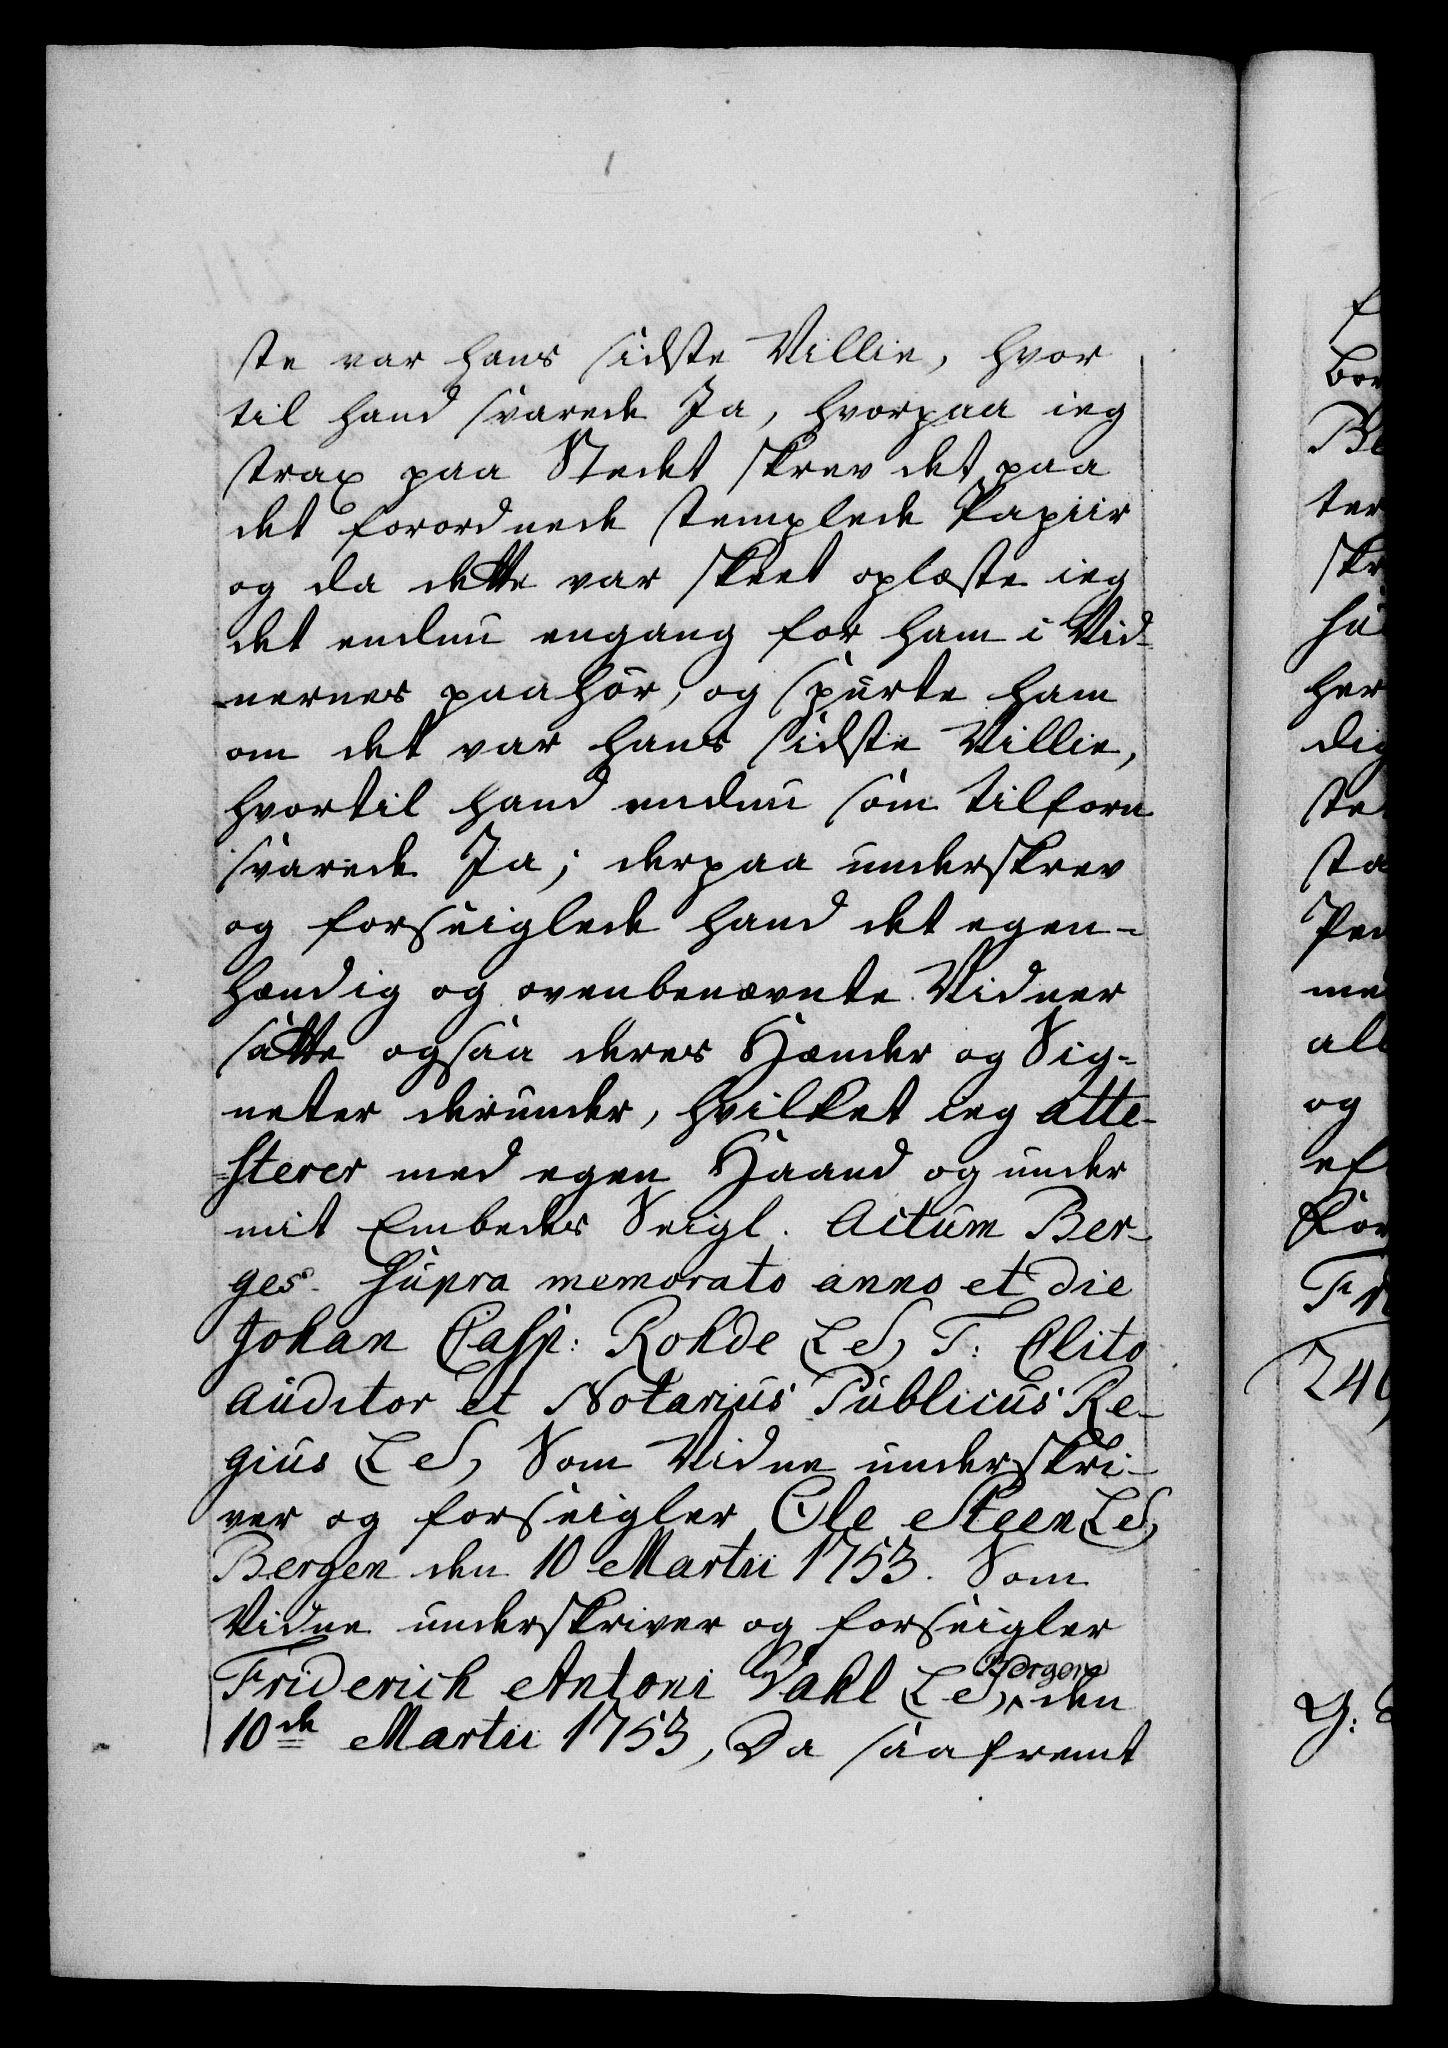 ste var hans sidste Villie, hvor
til hand svarede Ja, hvorpaa ieg
strax paa Stedet skrev det paa
det forordnede stemplede Papiir
og da dette var skeet oplæste ieg
det endnu engang for ham i Vid-
nernes paahør, og spurte ham
om det var hans sidste Villie,
hvortil hand endnu som tilforn
svarede Ja; derpaa underskrev
og forseiglede hand det egen-
hændig og ovenbenævnte Vidner
satte ogsaa deres Hænder og Sig-
neter derunder, hvilket ieg atte-
sterer med egen Haand og under
mit Embedes Seigl. Actum Ber-
ges. supra memorato anno et die
Johan Casp: Rohde LS, T: Clito
Auditor et Notarius Publicus Re-
gius LS, Som Vidne underskri-
ver og forseigler Ole Steen LS,
Bergen den 10 Martii 1753. Som
Vidne underskriver og forseigler
Friderich Antoni Vahl LS, Bergen den
10de Martii 1753, Da saafremt